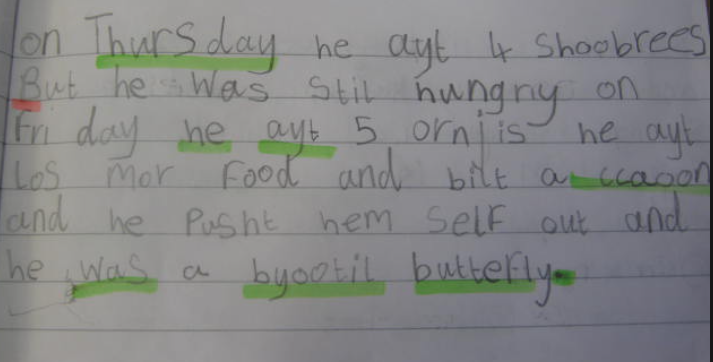 on Thursday he ayt 4 Shoobrees
But he was Stil hungry on
Fri day he ayt 5 ornjis he ayt
Los mor Food and bilt a ccaoon
and he Pusht hem SelF out and
he was a byootil butterfly.